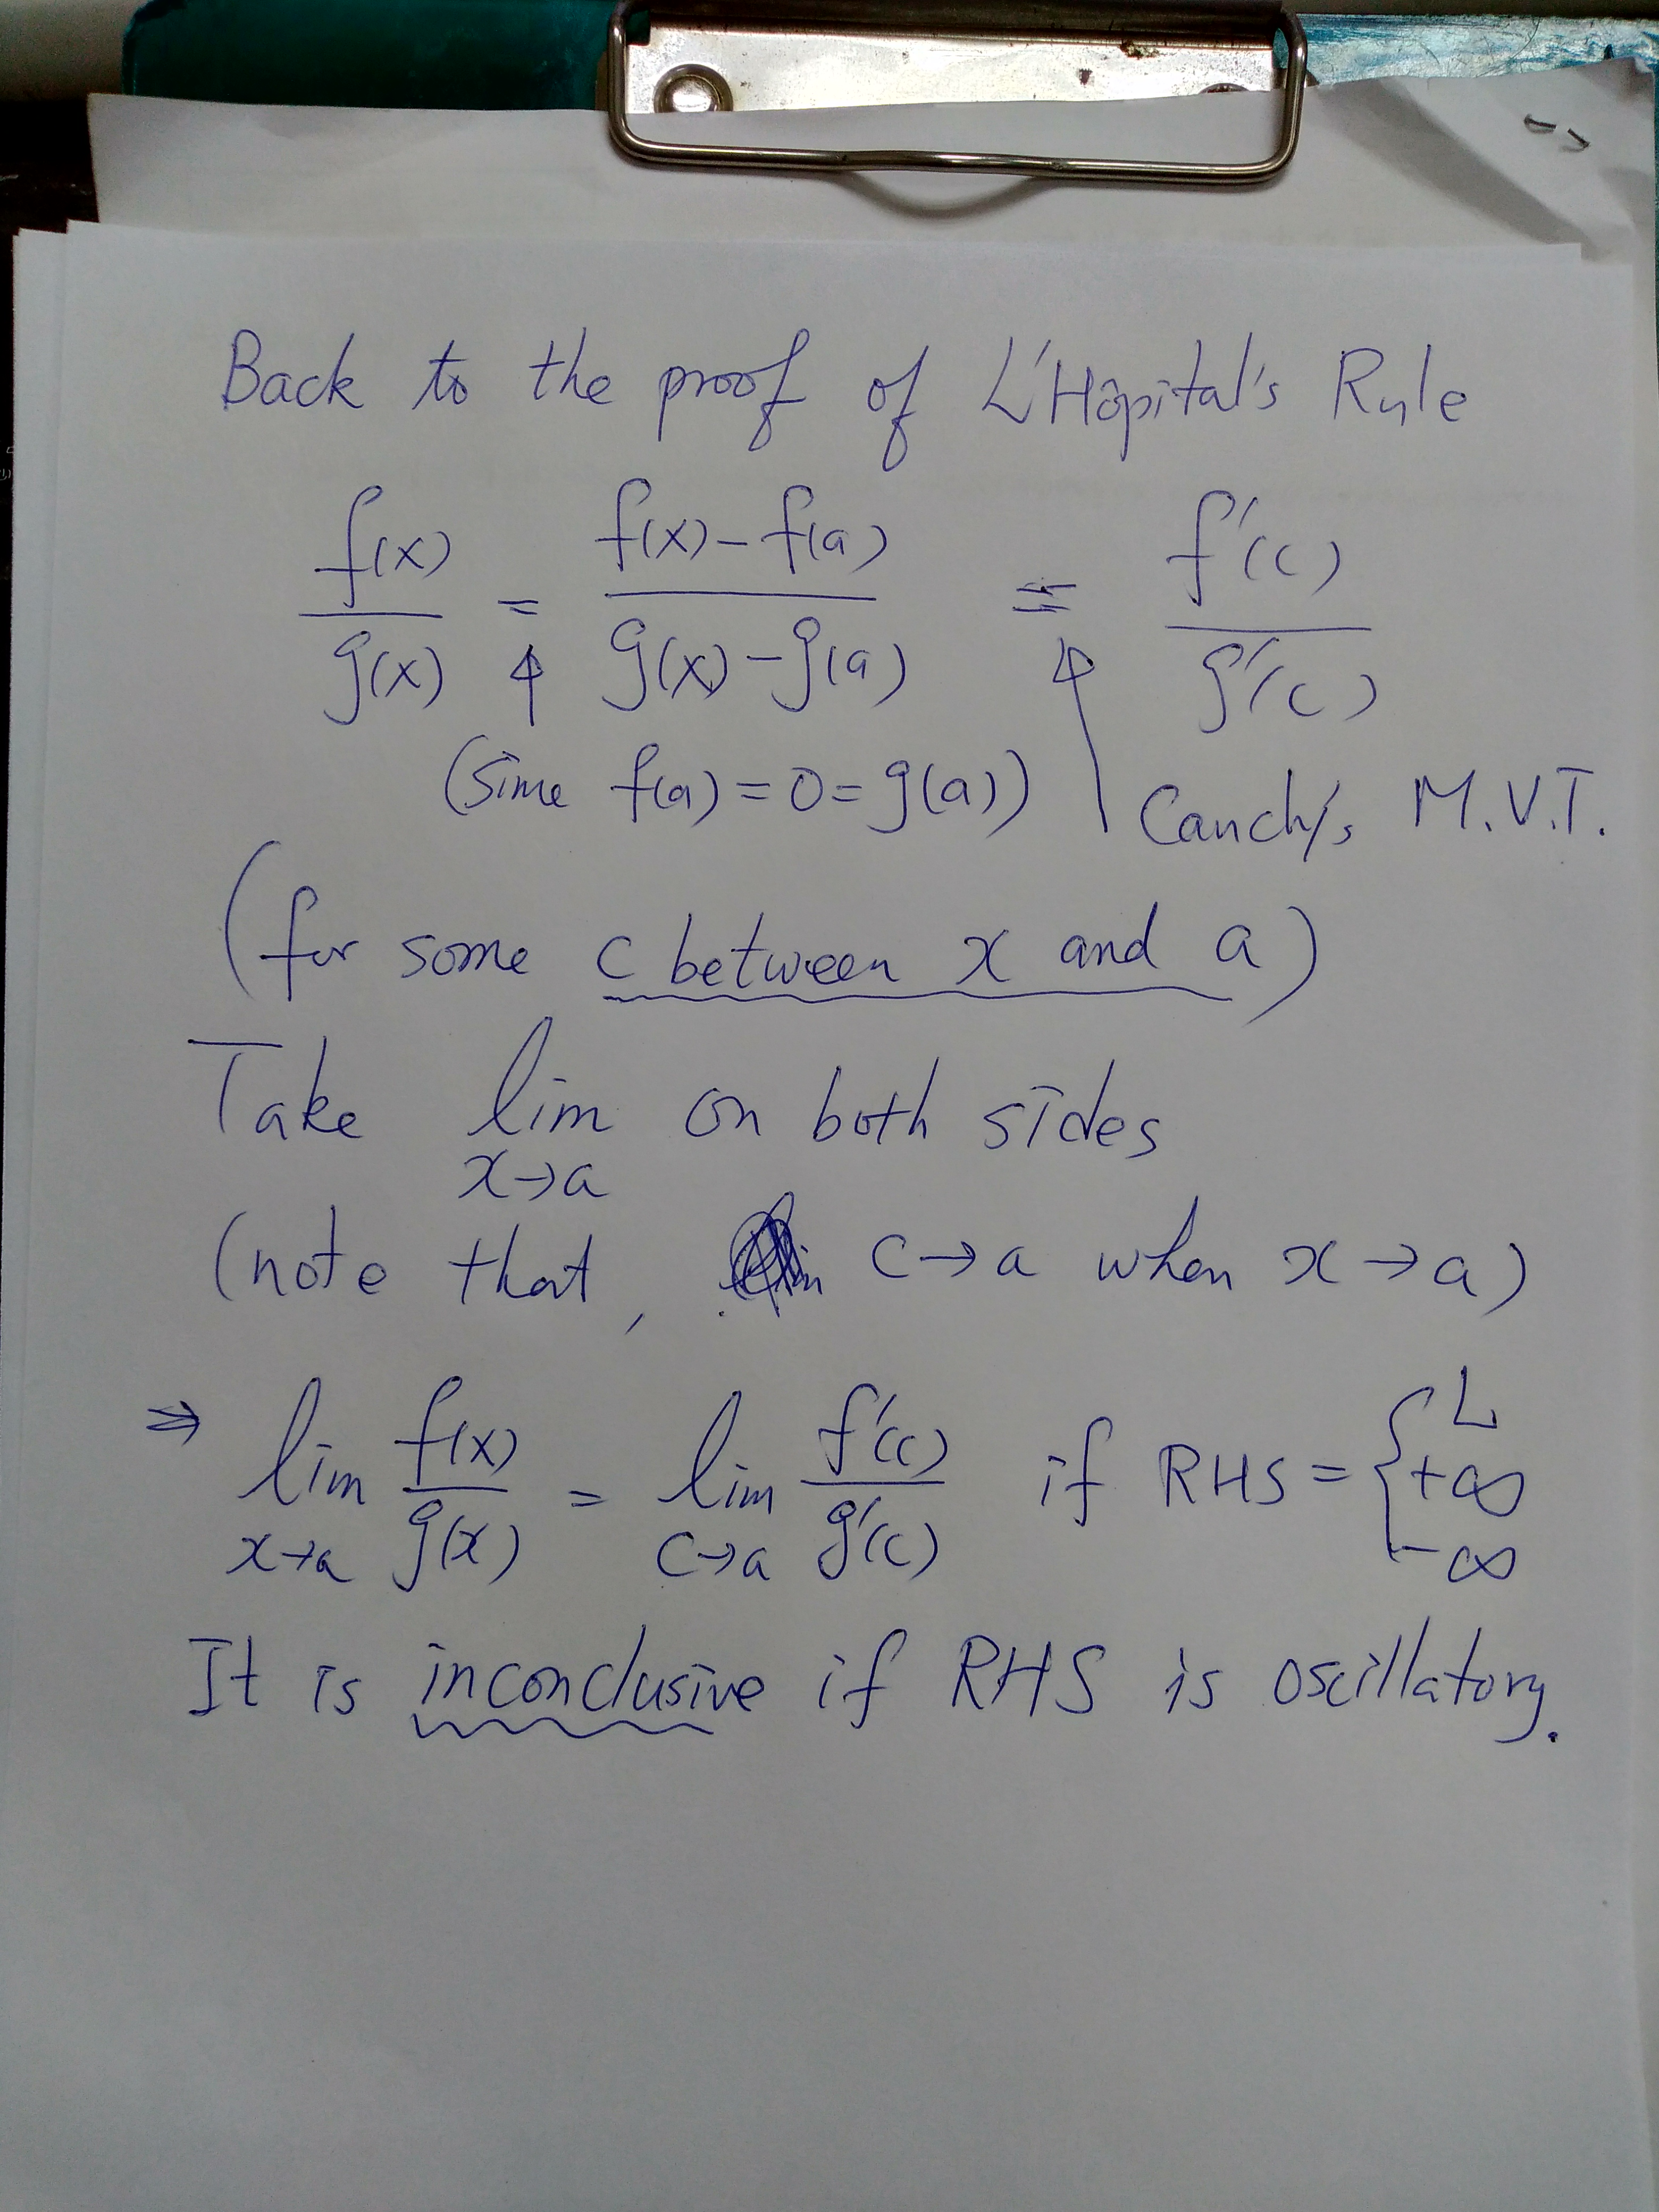 Back to the proof of L'Hôpital's Rule
f(x)/g(x) = (f(x)-f(a))/(g(x)-g(a)) = f'(c)/g'(c)
(since f(a)=0=g(a)) Cauchy's M.V.T.
(for some c between x and a)
Take lim x→a on both sides
(note that, c→a when x→a)
⇒ lim x→a f(x)/g(x) = lim c→a f'(c)/g'(c) if RHS = { L +∞ -∞
It is inconclusive if RHS is oscillatory.